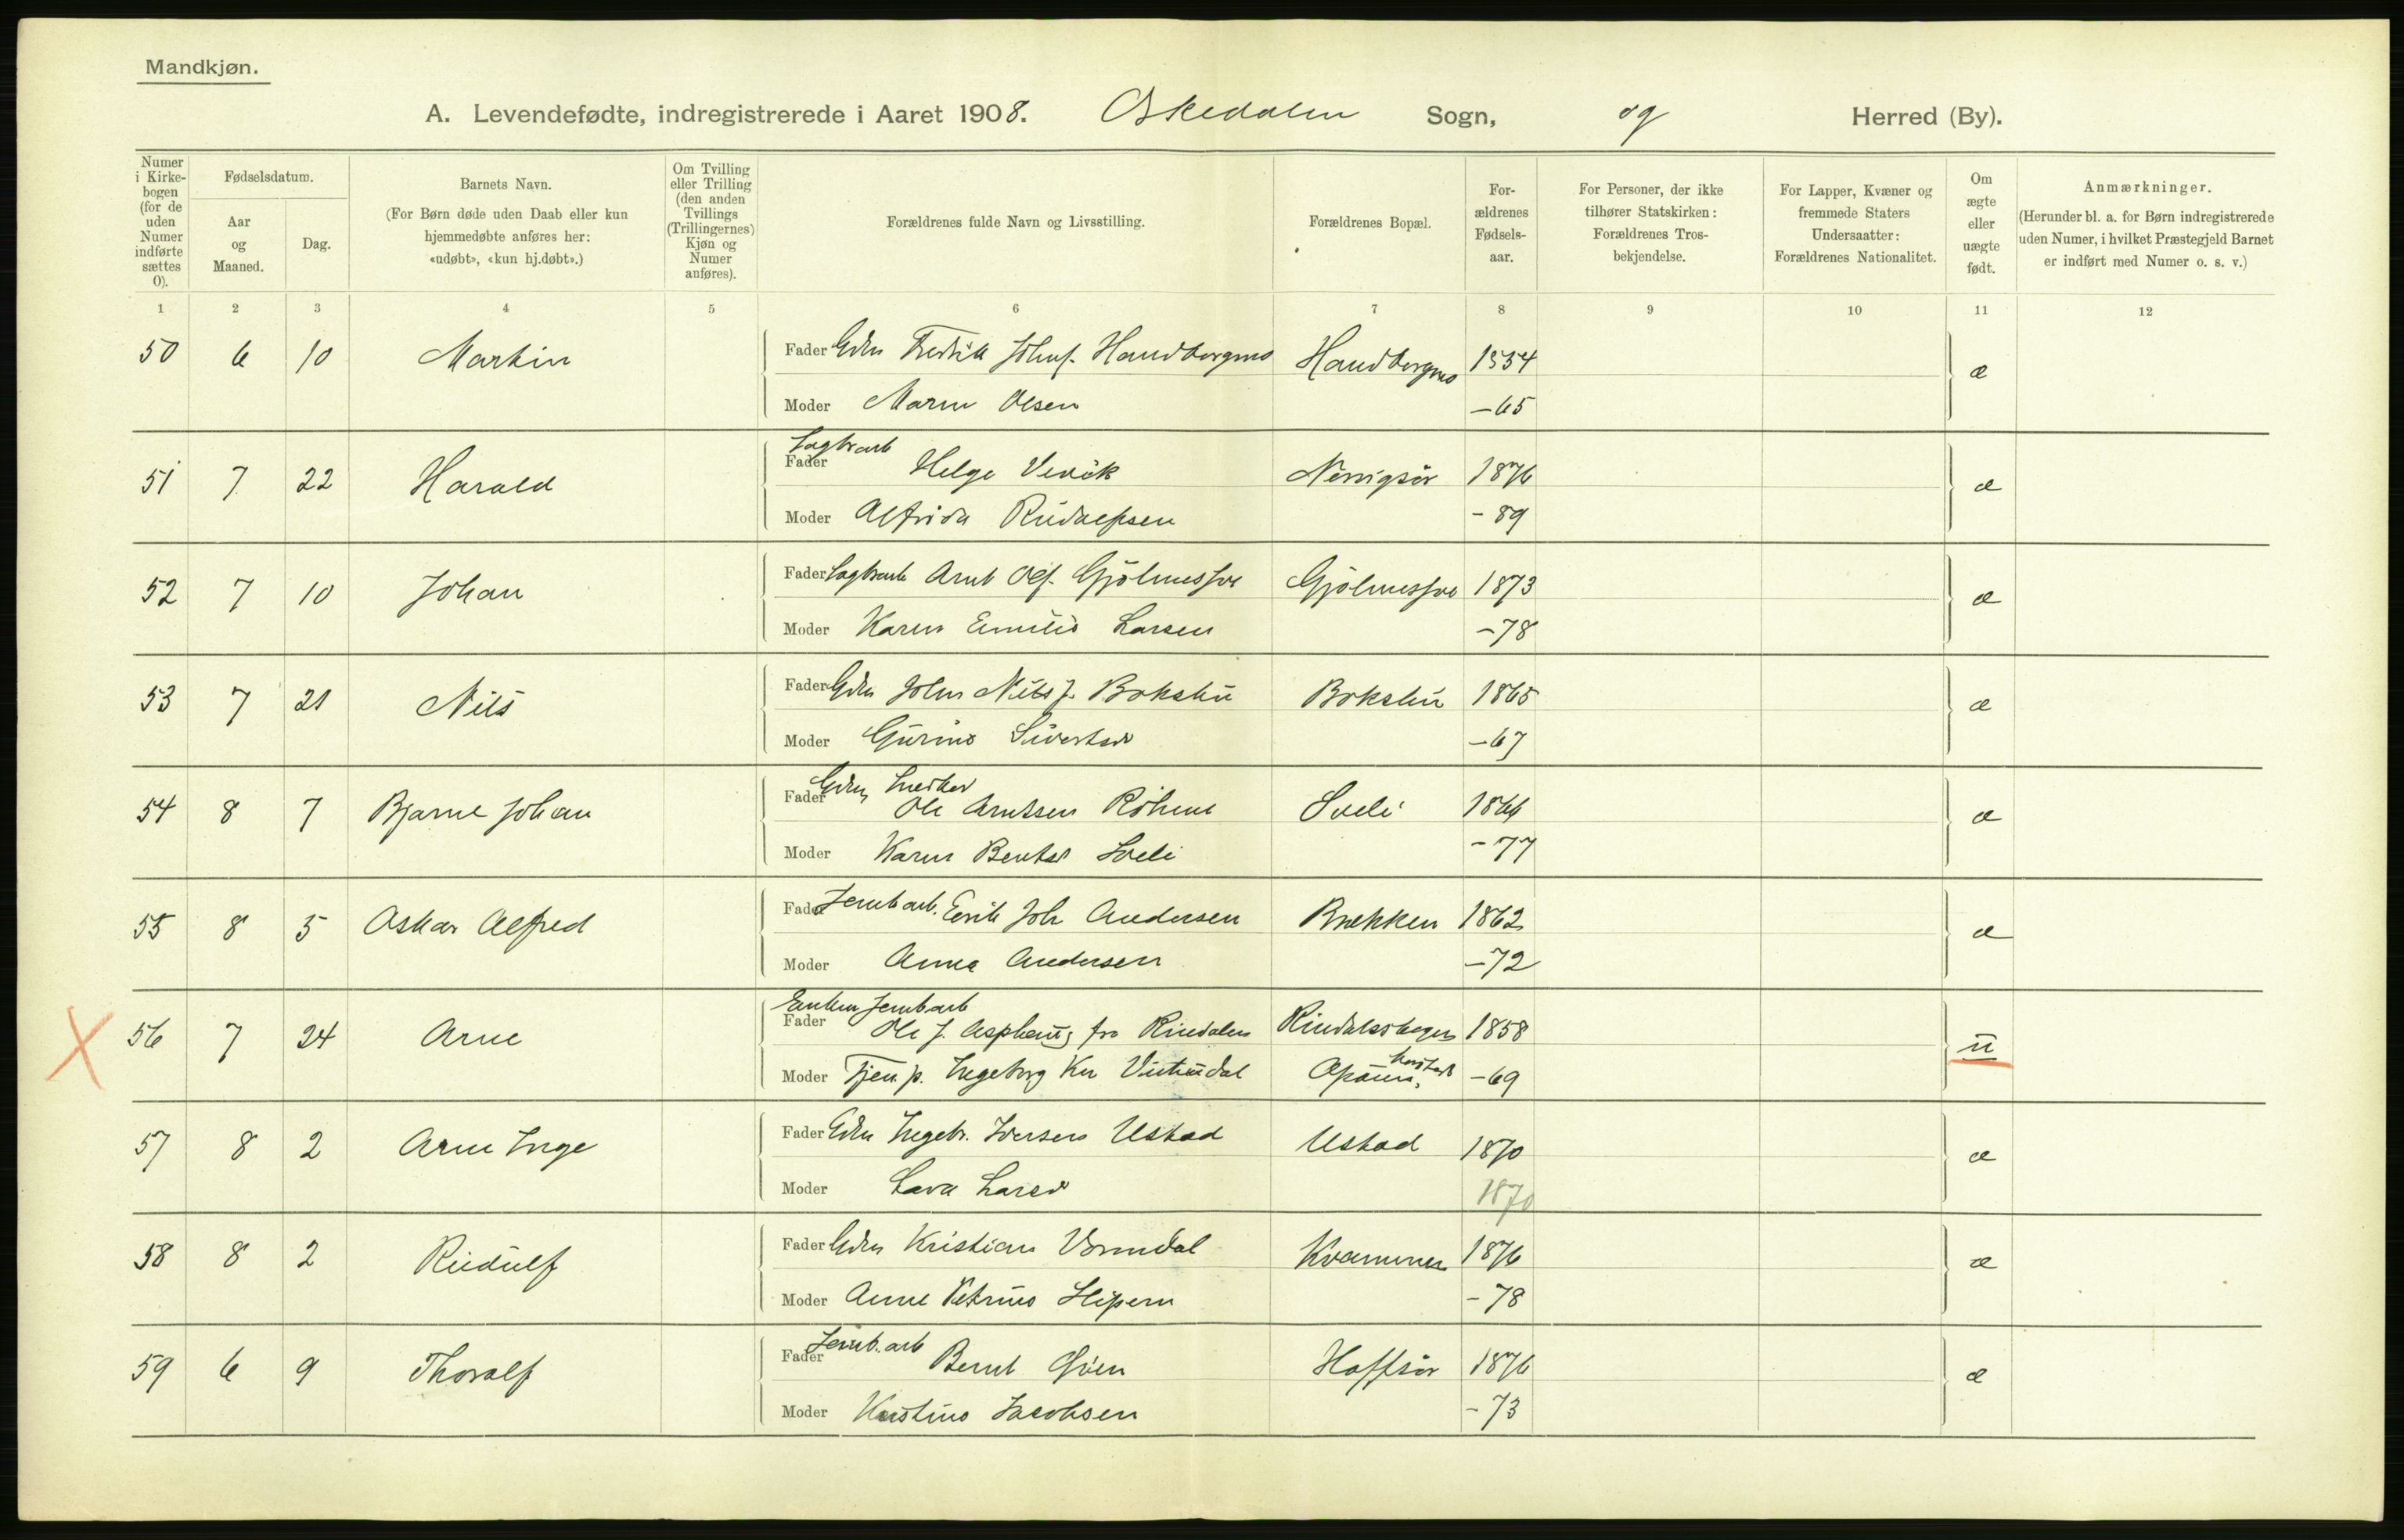 Mandkjøn.
A. Levendefødte, indregistrerede i Aaret 1908. Orkedalen Sogn, og Herred (By).
Numer i Kirkebogen (for de uden Numer indførte sættes 0).
Fødselsdatum.
Aar og Maaned.
Dag.
Barnets Navn.
(For Børn døde uden Daab eller kun hjemmedøbte anføres her: «udøbt», «kun hj.døbt».)
Om Tvilling eller Trilling (den anden Tvillings (Trillingernes) Kjøn og Numer anføres).
Forældrenes fulde Navn og Livsstilling.
Forældrenes Bopæl.
Forældrenes Fødselsaar.
For Personer, der ikke tilhører Statskirken: Forældrenes Trosbekjendelse.
For Lapper, Kvæner og fremmede Staters Undersaatter: Forældrenes Nationalitet.
Om ægte eller uægte født.
Anmærkninger.
(Herunder bl. a. for Børn indregistrerede uden Numer, i hvilket Præstegjeld Barnet er indført med Numer o. s. v.)
1 2 3 4 5 6 7 8 9 10 11 12
50 6 10 Martin Fader Gdm Fredrik Johns. Handbergmo Handbergmo 1854 æ
Moder Maren Olsen -65
51 7 22 Harald Fader Sagbrarb Helge Vevik 1876 æ
Moder Alfrida Rudolfsen -89
52 7 10 Johan Fader Sagbrarb Arnt Ols. 1873 æ
Moder Karen Emilie Larsen -78
53 7 21 Nils Fader Gdm John Nils J. Bokslu Bokslu 1865 æ
Moder Gurine Sivertsd -67
54 8 7 Bjarne Johan Fader Gdm Snedker Ole Arntsen Sveli æ
Moder Karen Bentsd Sveli -77
55 8 5 Oskar Alfred Fader Jernb arb. Erik Joh Andersen Brækken 1862 æ
Moder Anna Andersen -72
56 7 24 Arne Fader Enkem Jernb arb Ole J. Asphaug fra Rindalen Rindalsskogen 1858 u
Moder Tjen p. Ingeborg -69
57 8 2 Arne Inge Fader Gdm Ingebr. Iversen Ustad Ustad 1870 æ
Moder Larsd 1870
58 8 2 Rudulf Fader Gdm Kristian Vormdal Kvammen 1876 æ
Moder Anne Petrine -78
59 6 9 Thoralf Fader Jernb. arb Bernt 1876 æ
Moder Kristine Jacobsen -73